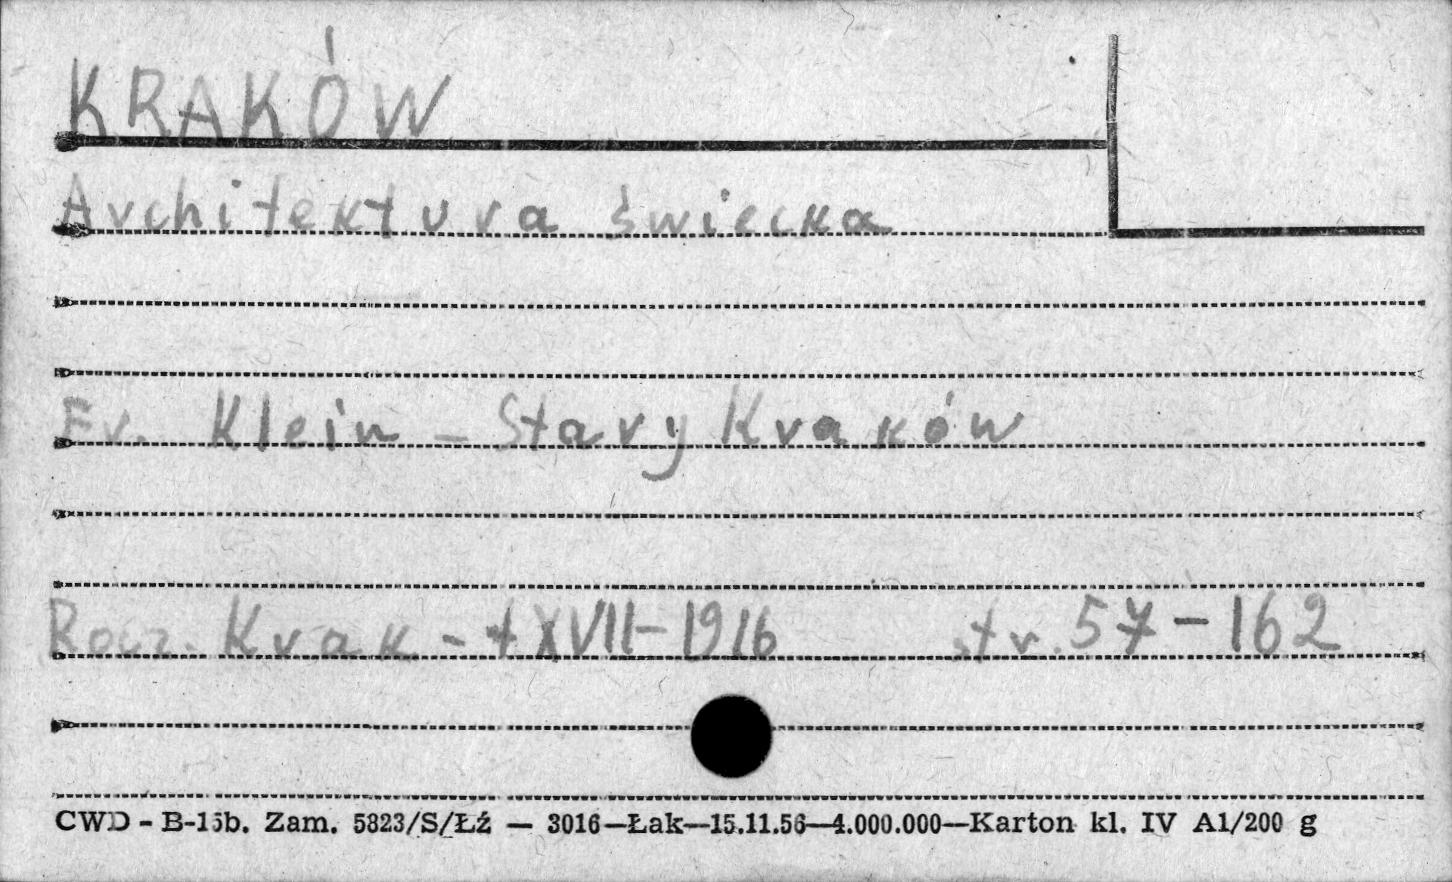 KRAKÓW
Architektura świecka
Fr. Klein – Stary Kraków
Rocz. Krak – t XVII – 1916 str. 57 – 162
CWD - B-15b. Zam. 5823/S/Łź — 3016—Łak—15.11.56—4.000.000—Karton kl. IV A1/200 g